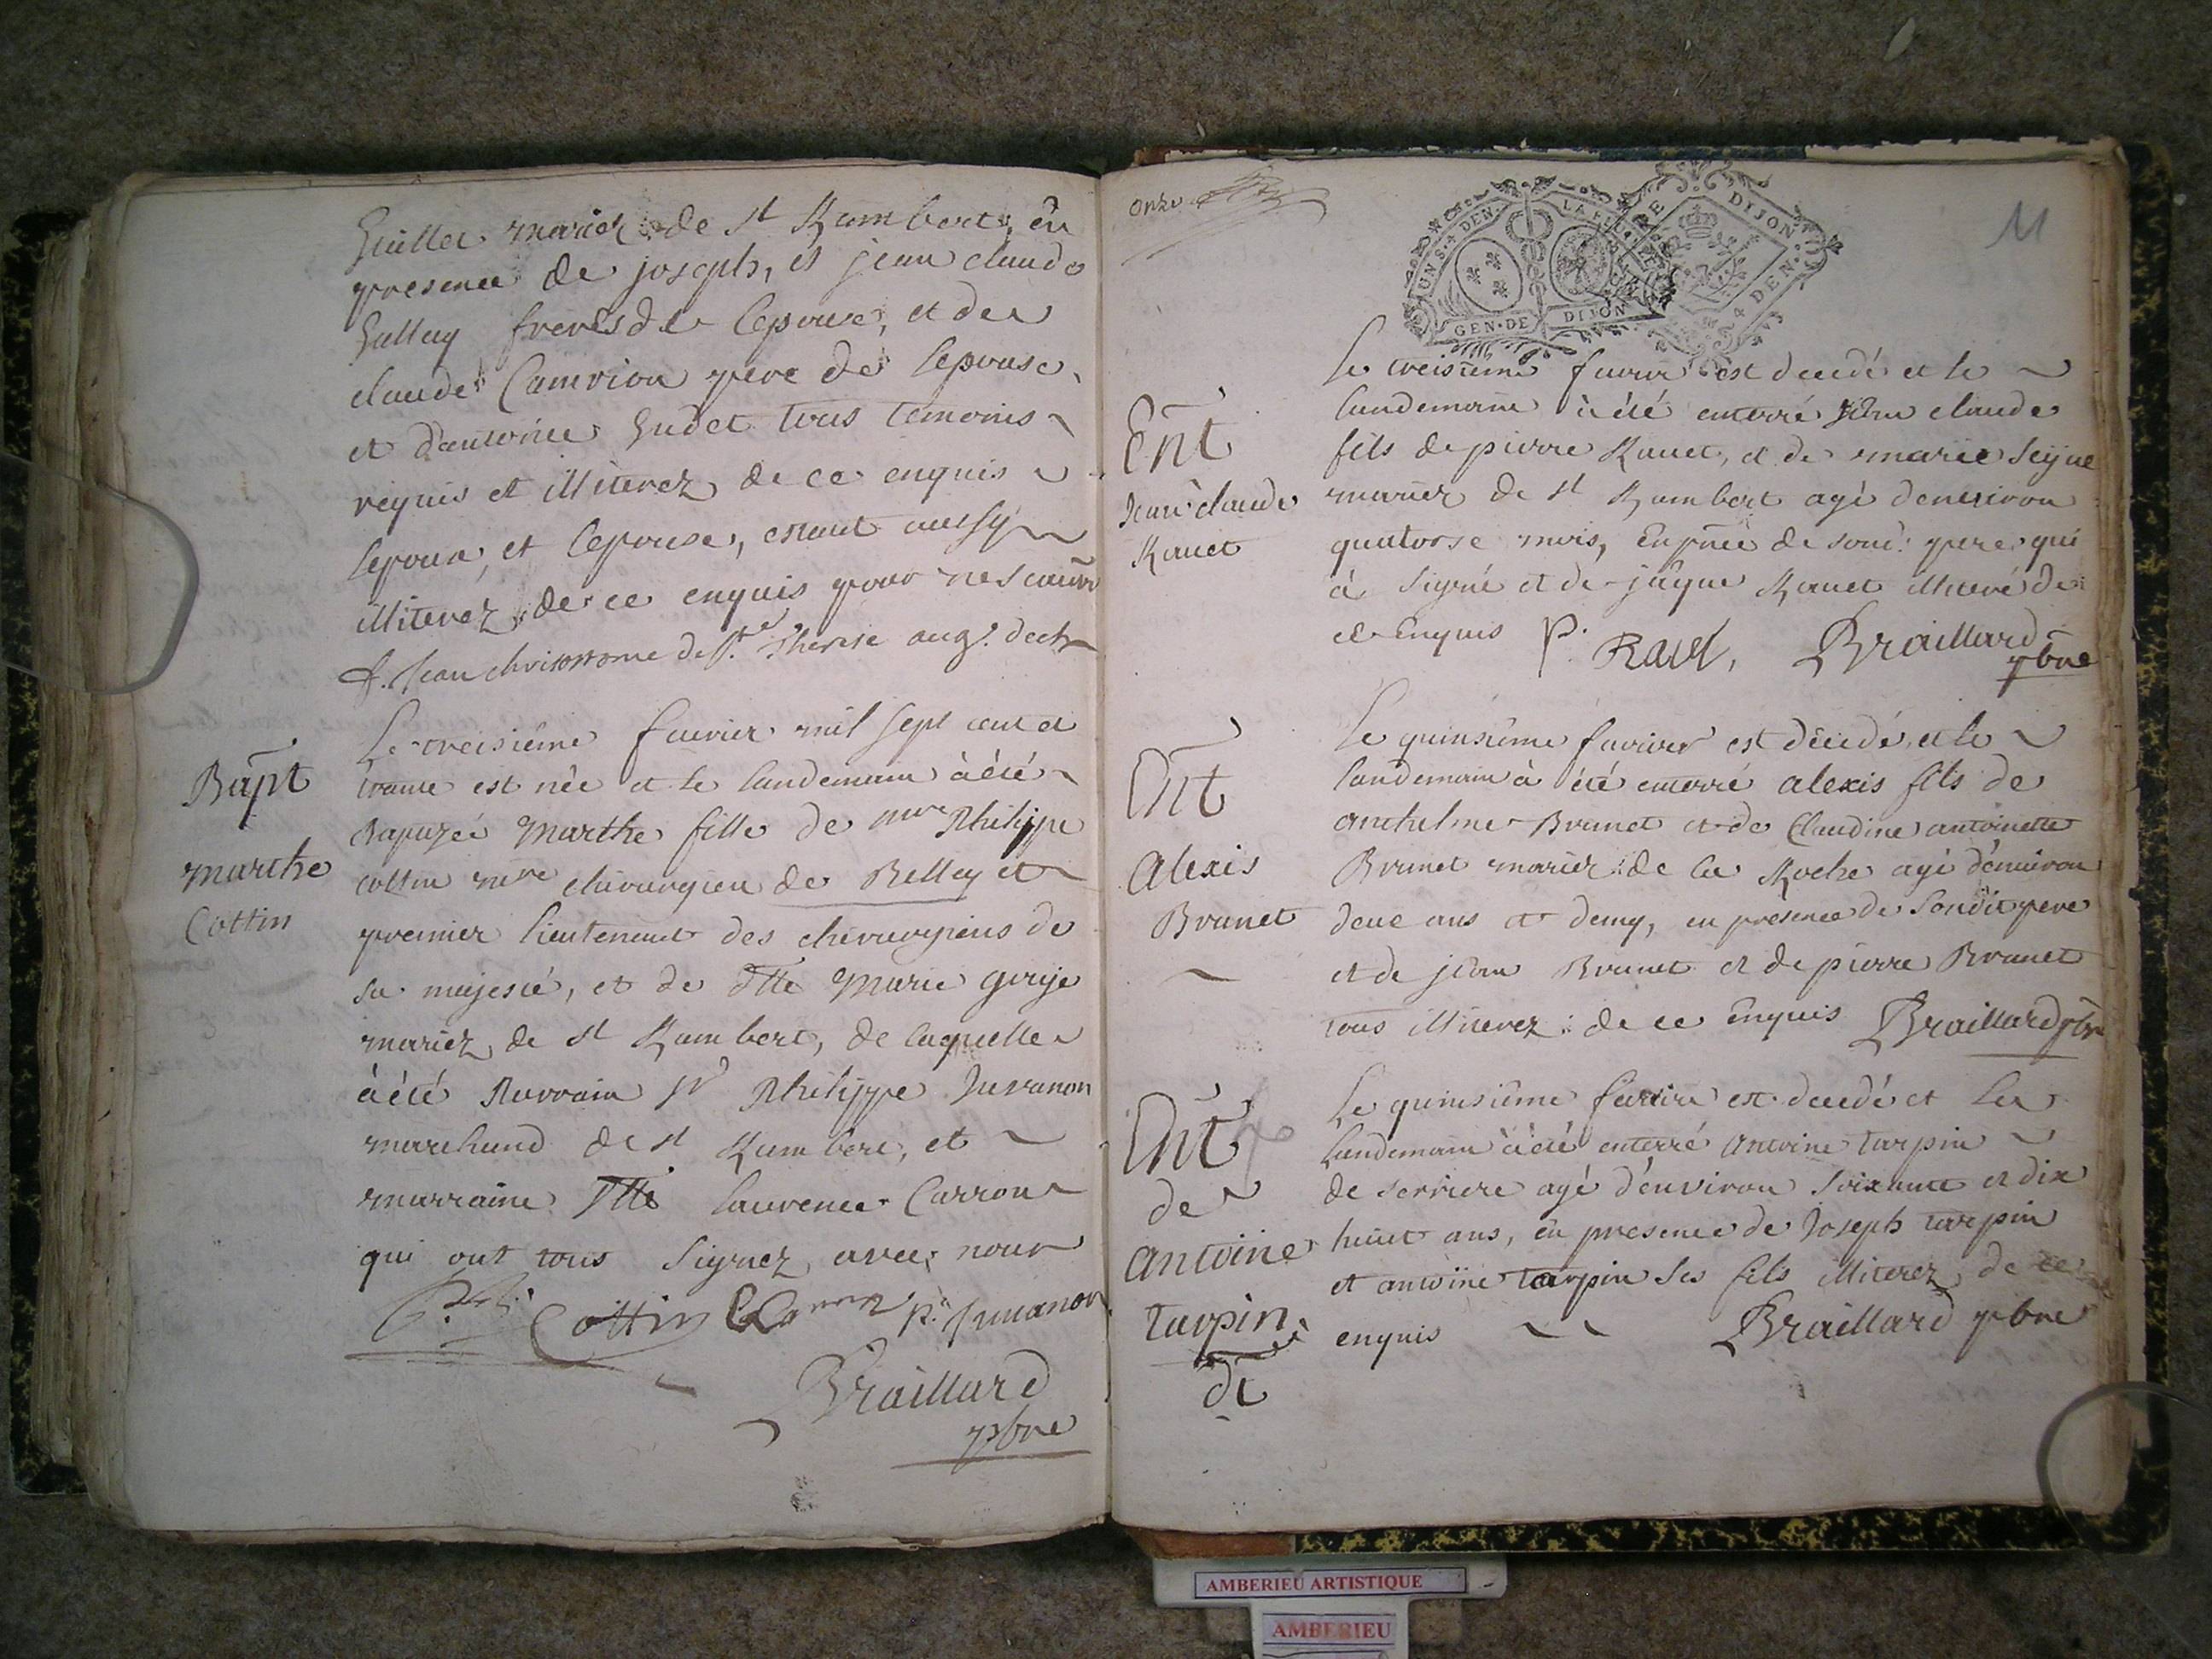 mariez de st Rambert, en
presence de joseph, et jean claude
Gallay freres de lepouse, et de
claude Camrion pere de lepouse,
et d'antoine Gudet tous temoins
requis et illiterez de ce enquis
lepoux, et lepouse, estant aussy
illiterez de ce enquis pour ne scauoir
f. Jean chrisostome de Ste Therese aug. dech
Bapt
marthe
Cottin
Le treisiême feurier mil sept cent et
trante est née et le landemain à été
Bapuzée Marthe fille de mre Philippe
cottin mre chirurgien de Belley et
premier lieutenant des chirurgiens de
sa majesté, et de dlle Marie gorje
mariez de st Rambert, de laquelle
à été Parrain sr Philippe Juvanon
marchand de st Rambert, et
marraine dlle laurence Carron
qui ont tous signez avec nous
Cottin LCarron p. Juuanon
Braillard
pbre
onze
11
UNS. 4 DEN.
GEN. DE DIJON
DIJON
DEN.
Ent
Jean claude
Rauet
Le treisième feurier est decedé et le
landemain à été enterré jean claude
fils de pierre Rauet, et de marie Seijue
mariez de st Rambert agé denuiron
quatorse mois, En pnce de son pere qui
à signé et de jâque Rauet illiteré de
ce Enquis P. Ravet, Braillard
pbre
Ent
Alexis
Brunet
Le quinsième feurier est décedé, et le
landemain à été enterré alexis fils de
anthelme Brunet et de Claudine antoinette
Brunet mariez de la Roche agé d'enuiron
deux ans et demy, en presence de sondit pere
et de jean Brunet et de pierre Brunet
tous illiterez de ce Enquis Braillard pbre
Ent
de
antoine
tarpin
Le quinsième feurier est decedé et le
landemain à été enterré antoine tarpin
de serriere agé d'environ soixante et dix
huict ans, en presence de Joseph tarpin
et antoine tarpin ses fils illiterez de ce
enquis Braillard pbre
AMBERIEU ARTISTIQUE
AMBERIEU